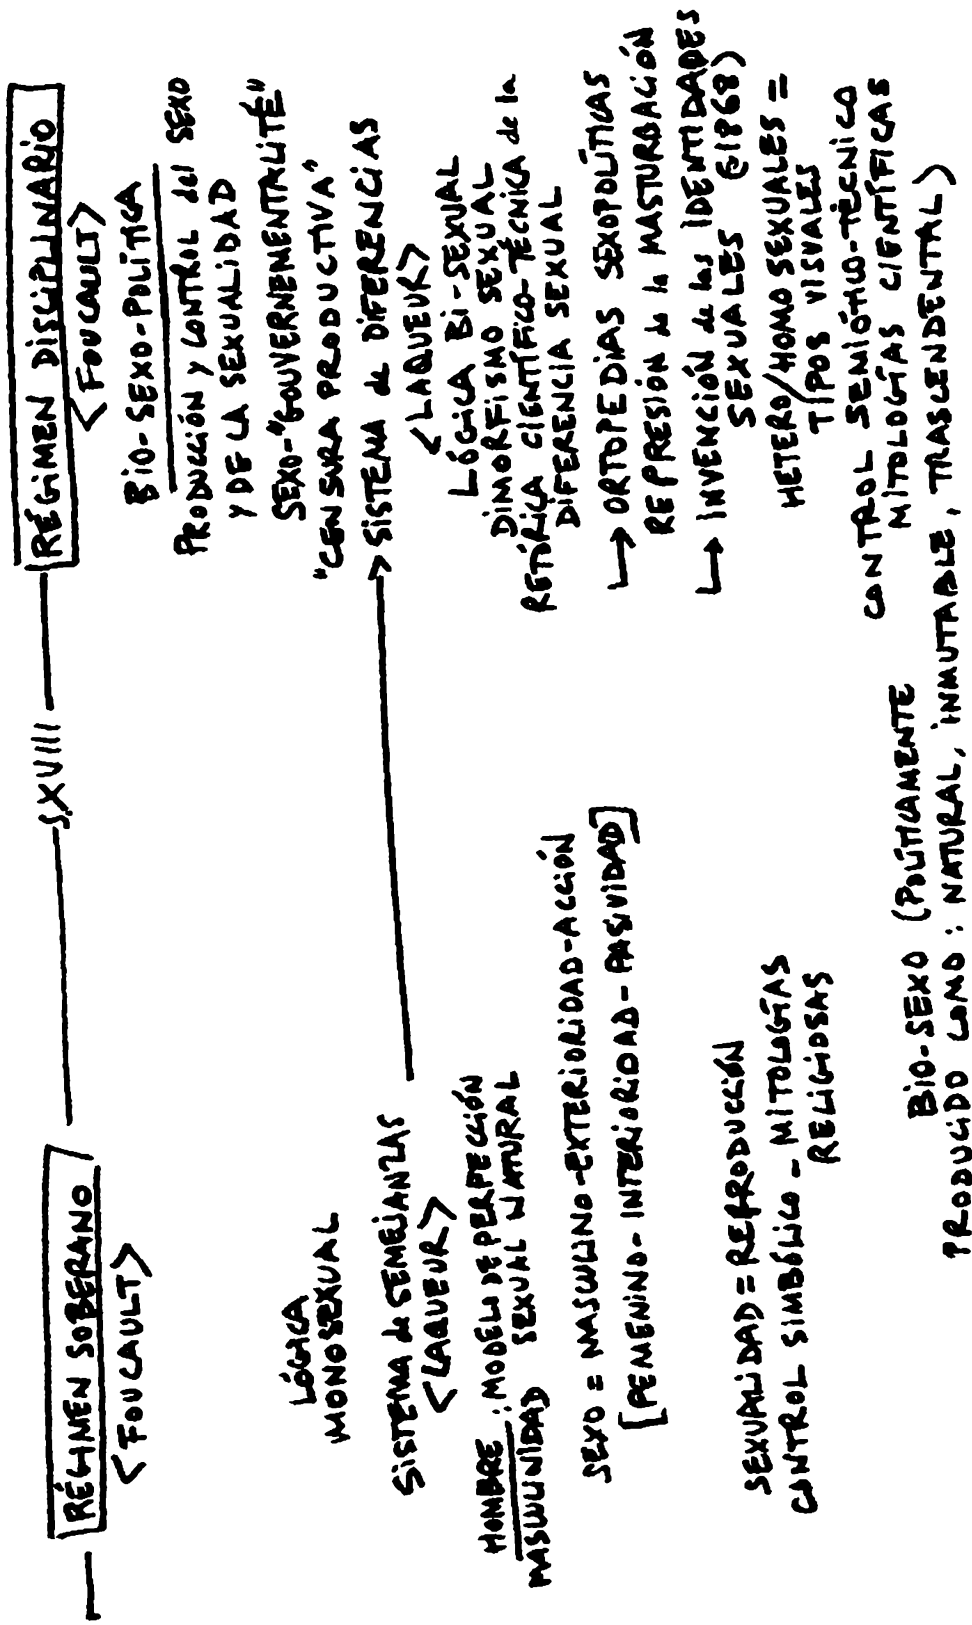 RÉGIMEN SOBERANO
<FOUCAULT>
LÓGICA
MONOSEXUAL
SISTEMA de SEMEJANZAS
<LAQUEUR>
HOMBRE : MODELO DE PERFECCIÓN
MASCULINIDAD SEXUAL NATURAL
SEXO = MASCULINO-EXTERIORIDAD-ACCIÓN
[FEMENINO-INTERIORIDAD-PASIVIDAD]
SEXUALIDAD = REPRODUCCIÓN
CONTROL SIMBÓLICO - MITOLOGÍAS
RELIGIOSAS
S.XVIII
RÉGIMEN DISCIPLINARIO
<FOUCAULT>
BIO-SEXO-POLÍTICA
PRODUCCIÓN y CONTROL del SEXO
y DE LA SEXUALIDAD
SEXO-"GOUVERNEMENTALITÉ"
"CENSURA PRODUCTIVA"
SISTEMA de DIFERENCIAS
<LAQUEUR>
LÓGICA BI-SEXUAL
DIMORFISMO SEXUAL
RETÓRICA CIENTÍFICO-TÉCNICA de la
DIFERENCIA SEXUAL
→ ORTOPEDIAS SEXOPOLÍTICAS
REPRESIÓN de la MASTURBACIÓN
→ INVENCIÓN de las IDENTIDADES
SEXUALES (1868)
HETERO/HOMOSEXUALES =
TIPOS VISUALES
CONTROL SEMIÓTICO-TÉCNICO
MITOLOGÍAS CIENTÍFICAS
BIO-SEXO (POLÍTICAMENTE
PRODUCIDO COMO: NATURAL, INMUTABLE, TRASCENDENTAL)